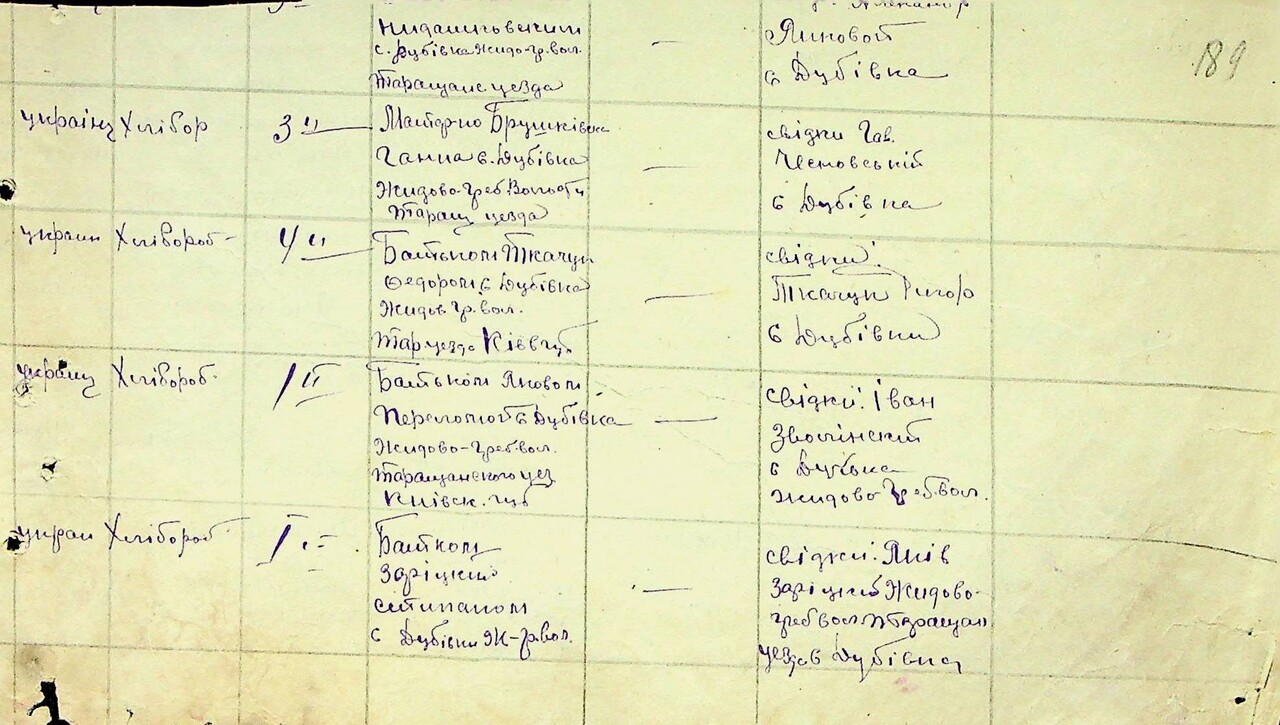 с. Дубівка Жидо-Гр. вол.
Таращанс уезда
Яновой
с Дубівка
189
україн Хлібор 3
Ганна с. Дубівка
Жидово-Греб. Волости
Таращ уезда
свідки Гав.
с Дубівка
україн Хлібороб- 4
Батьком Ткачук
Федором с Дубівка
Жидов Гр. вол.
Тар уезда Київ губ
свідки:
Ткачук Григор
с Дубівки
україн Хлібороб. 1
Батьком Яковом
с Дубівка
Жидово-Греб вол.
Таращанского уез
Київск. губ
свідки: Іван
Зволінский
с Дубівка
Жидово Греб. вол.
украи Хлібороб 1
Батком
Заріцкий
Степаном
с Дубівки Ж-Гр. вол.
свідки: Яків
Заріцкий Жидово-
греб вол. Таращан
уезда с Дубівка